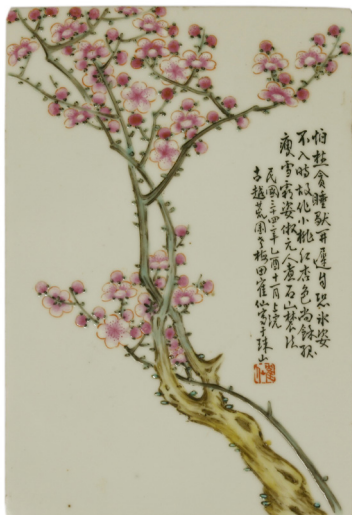 怕愁貪睡獨開遲自恐冰姿
不入時故作小桃紅杏色尚餘孤
瘦雪霜姿倣元人煮石山農法
民國三十四年乙酉十一月上浣
古越荒園老梅田隺仙寫于珠山